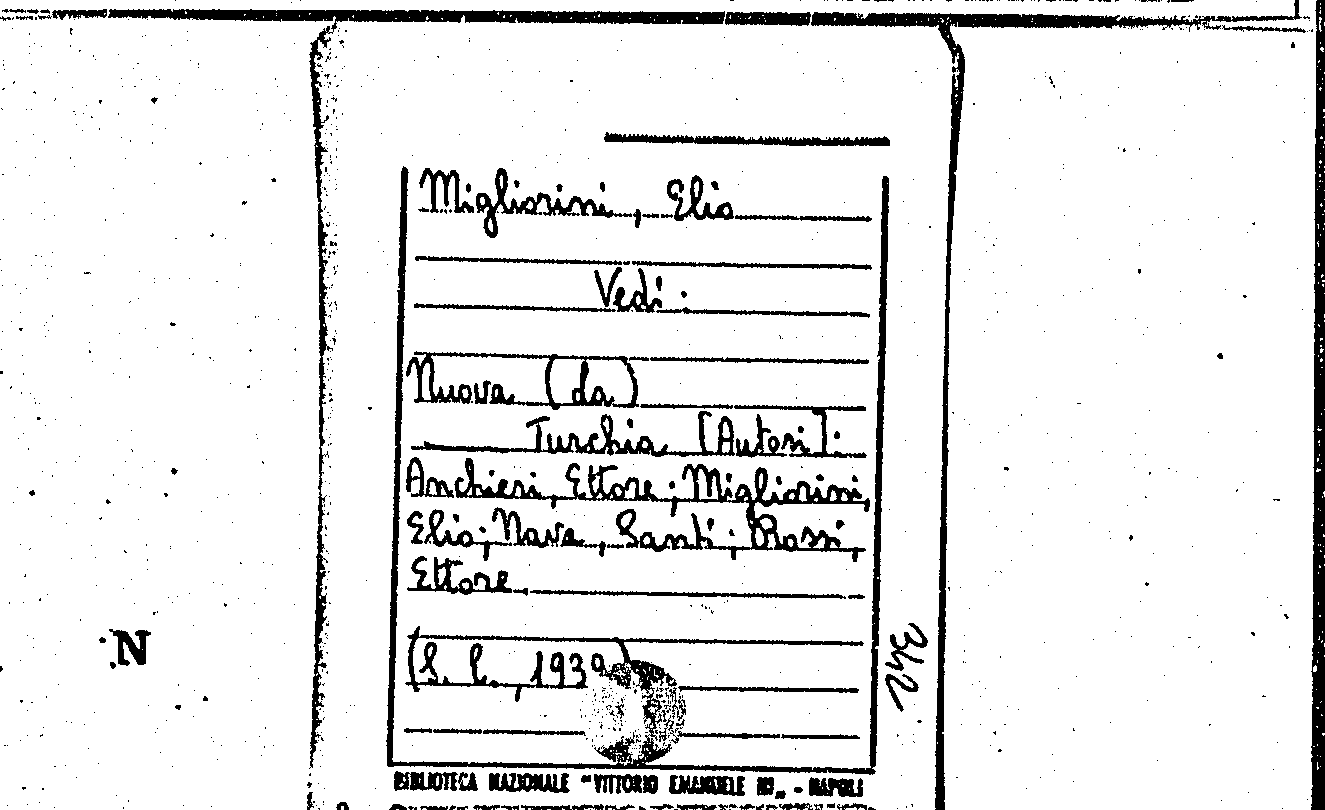 Migliorini, Elio
Vedi:
Nuova (da)
Turchia [Autori]:
Anchieri, Ettore; Migliorini,
Elio; Nava, Santi; Rossi,
Ettore.
(S. l., 1939)
342
N
BIBLIOTECA NAZIONALE "VITTORIO EMANUELE III„ - NAPOLI